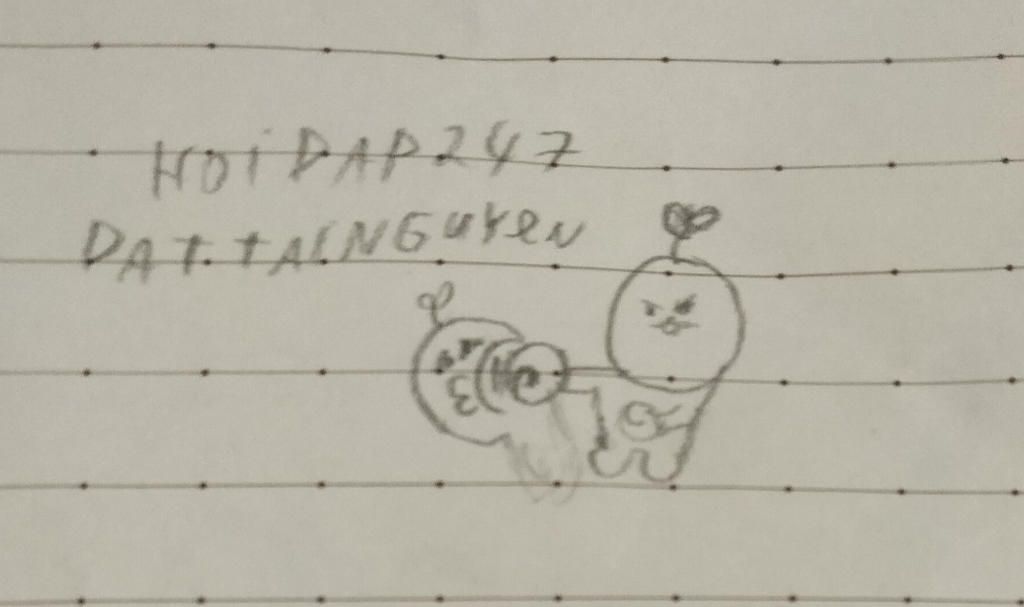 HOiDAP247
DATTAINGuyeN